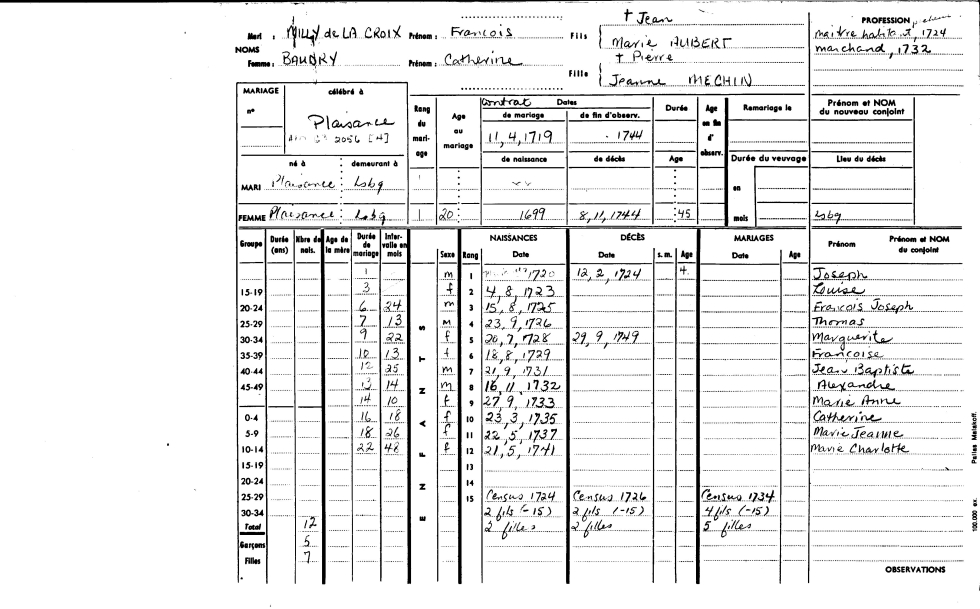 † Jean
PROFESSION
Mari : MILLY de LA CROIX Prénom : Francois Fils
maitre habitant, 1724
NOMS
Marie AUBERT
marchand, 1732
Femme : BAUDRY Prénom : Catherine
† Pierre
Fille
Jeanne MECHIN
MARIAGE célébré à
n° Plaisance
2056 [4]
né à demeurant à
MARI Plaisance Lsbg
FEMME Plaisance Lsbg 1 20 1699 8, 11, 1744 45 Lsbg
Rang du mari- age
Age au mariage
Contrat Dates
de mariage de fin d'observ.
11, 4, 1719 1744
de naissance de décès Age
Durée
Age en fin d' observ.
Remariage le
Durée du veuvage
en
mois
Prénom et NOM
du nouveau conjoint
Lieu du décès
NAISSANCES DÉCÈS MARIAGES
Groupe Durée (ans) Nbre de nais. Age de la mère Durée de mariage Inter- valle en mois Sexe Rang Date Date s. m. Age Date Age Prénom Prénom et NOM du conjoint
E N F A N T S
1 m 1 1720 12, 2, 1724 4 Joseph
15-19 3 f 2 4, 8, 1723 Louise
20-24 6 24 m 3 15, 8, 1725 Francois Joseph
25-29 7 13 m 4 23, 9, 1726 Thomas
30-34 9 22 f 5 20, 7, 1728 29, 9, 1749 Marguerite
35-39 10 13 f 6 18, 8, 1729 Francoise
40-44 12 25 m 7 21, 9, 1731 Jean Baptiste
45-49 13 14 m 8 16, 11, 1732 Alexandre
14 10 f 9 27, 9, 1733 Marie Anne
0-4 16 18 f 10 23, 3, 1735 Catherine
5-9 18 26 f 11 22, 5, 1737 Marie Jeanne
10-14 22 48 f 12 21, 5, 1741 Marie Charlotte
15-19 13
20-24 14
25-29 15 Census 1724 Census 1726 Census 1734
30-34 2 fils (-15) 2 fils (-15) 4 fils (-15)
Total 12 2 filles 2 filles 5 filles
Garçons 5
Filles 7
OBSERVATIONS
100.000 ex. Pelles Malakoff.